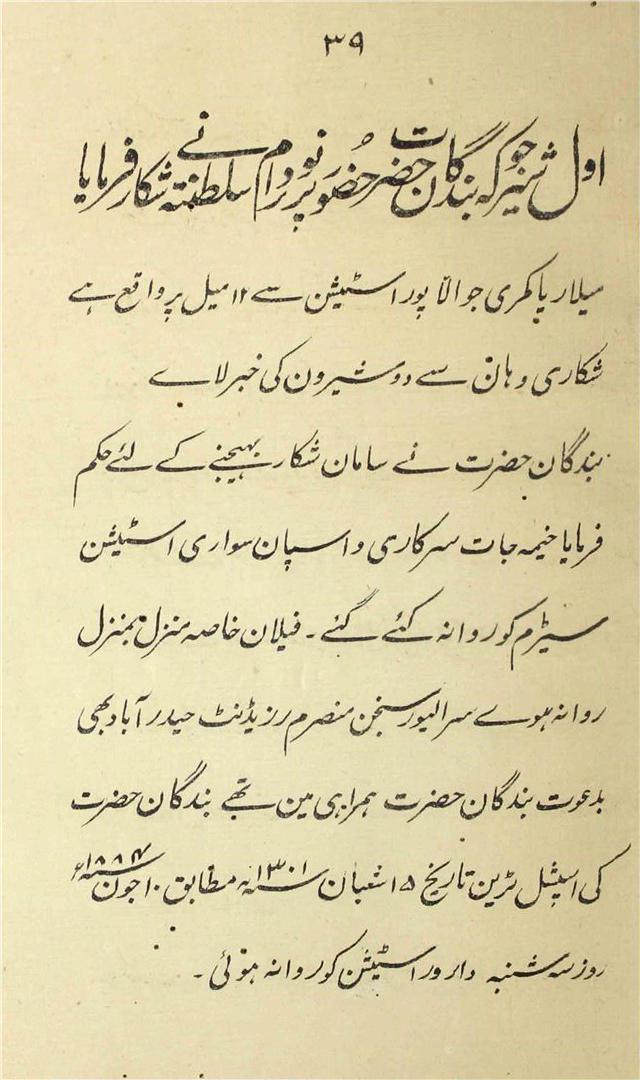 ۳۹
اول شیر جو کہ بندگان حضرت حضور پر نور دام سلطنتہ نے شکار فرمایا
میلار پاکمری جوالّا پور اسٹیشن سے ۱۲ میل پر واقع ہے
شکاری وہان سے دو شیرون کی خبر لاے
بندگان حضرت نے سامان شکار بہیجنے کے لئے حکم
فرمایا خیمہ جات سرکاری و اسپان سواری اسٹیشن
سیڑم کو روانہ کئے گئے ۔ فیلان خاصہ منزل بمنزل
روانہ ہوے سر الیور سنجن منصرم رزیڈنٹ حیدرآباد بھی
بدعوت بندگان حضرت ہمراہی مین تھے بندگان حضرت
کی اسپیشل ٹرین تاریخ ۱۵ شعبان سنہ ۱۳۰۱ھ مطابق ۱۰ جون سنہ ۱۸۸۴ء
روز سہ شنبہ دارور اسٹیشن کو روانہ ہوئی ۔